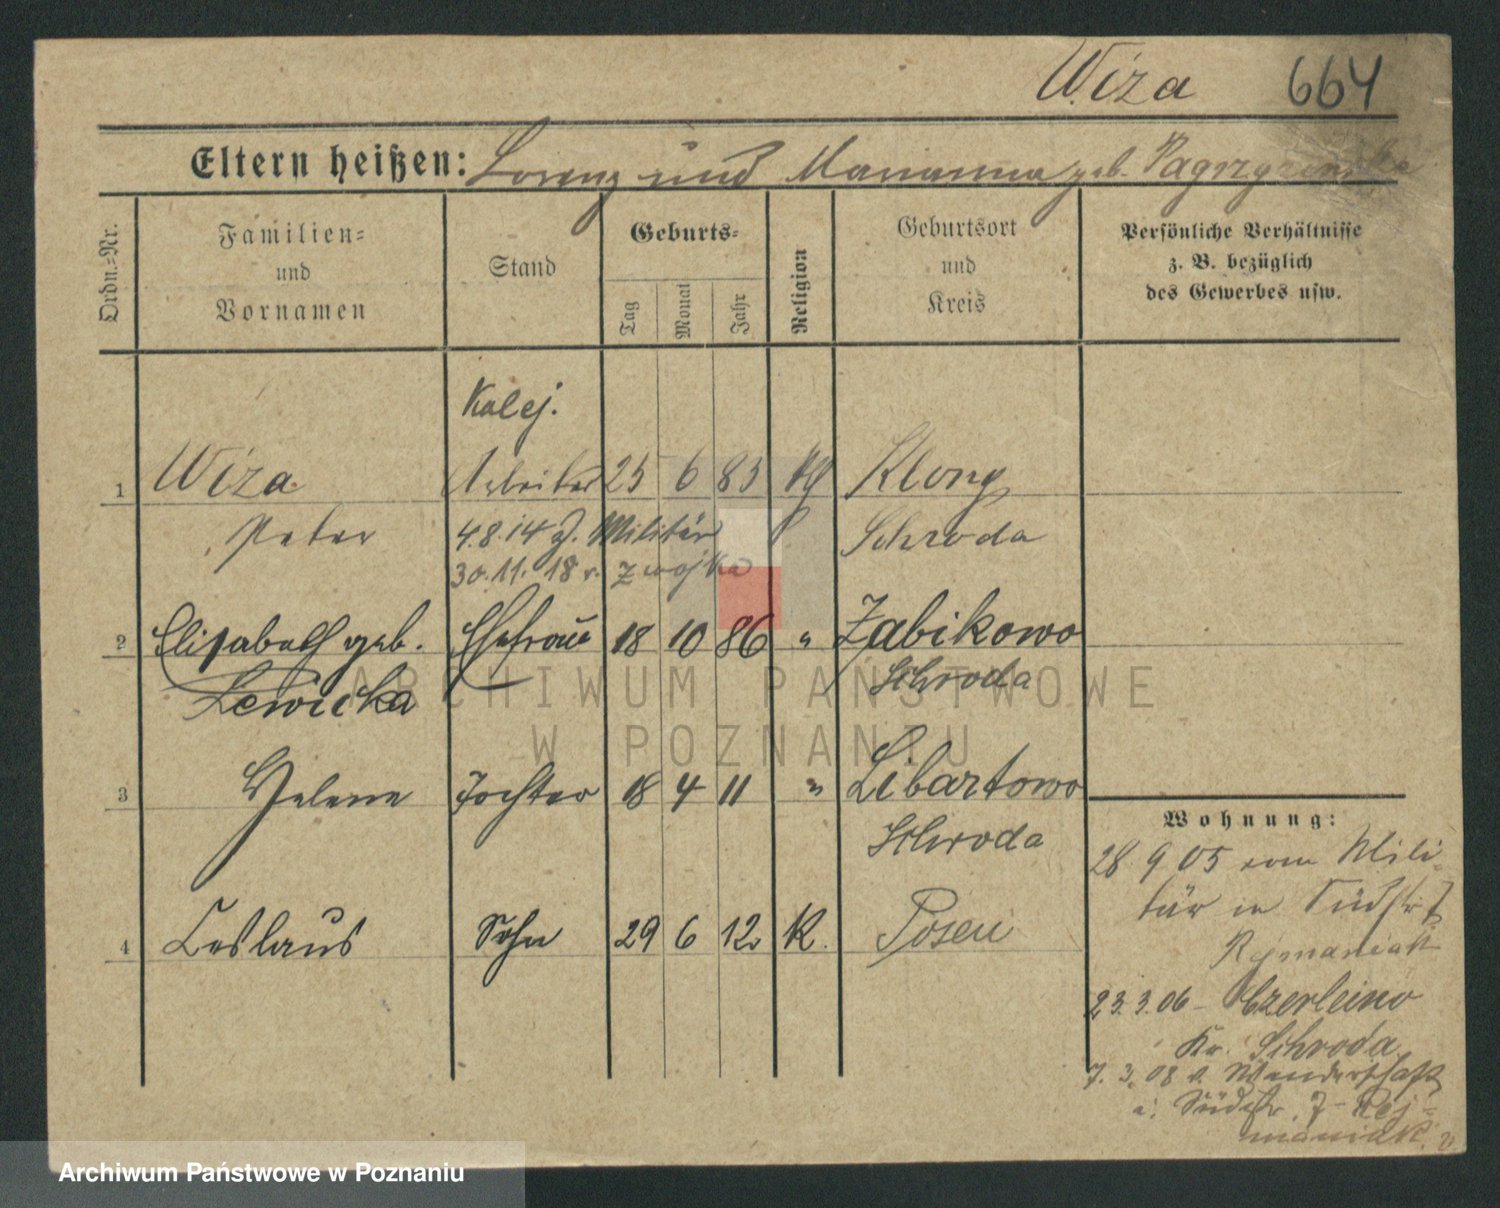 Wiza 664
Eltern heißen: Lorenz und Marianna geb.
Ordn.-Nr.
Familien-
und
Vornamen
Stand
Geburts-
Tag
Monat
Jahr
Religion
Geburtsort
und
Kreis
Persönliche Verhältnisse
z. B. bezüglich
des Gewerbes usw.
Kolej.
1 Wiza Arbeiter 25 6 83 Klony
Peter 4.8.14 z. Militär Schroda
30.11.18 z wojska
2 Elisabeth geb. Ehefrau 18 10 86 " Żabikowo
Lewicka Schroda
3 Helene Tochter 18 4 11 " Libartowo
Schroda
4 Ceslaus Sohn 29 6 12 K. Posen
Wohnung:
28 9 05 vom Mili-
tär in
Rejmaniak
23.3.06 - Czerleino
Kr. Schroda
7.3.08 v. Wanderschaft
Rej-
maniak.
ARCHIWUM PAŃSTWOWE
W POZNANIU
Archiwum Państwowe w Poznaniu